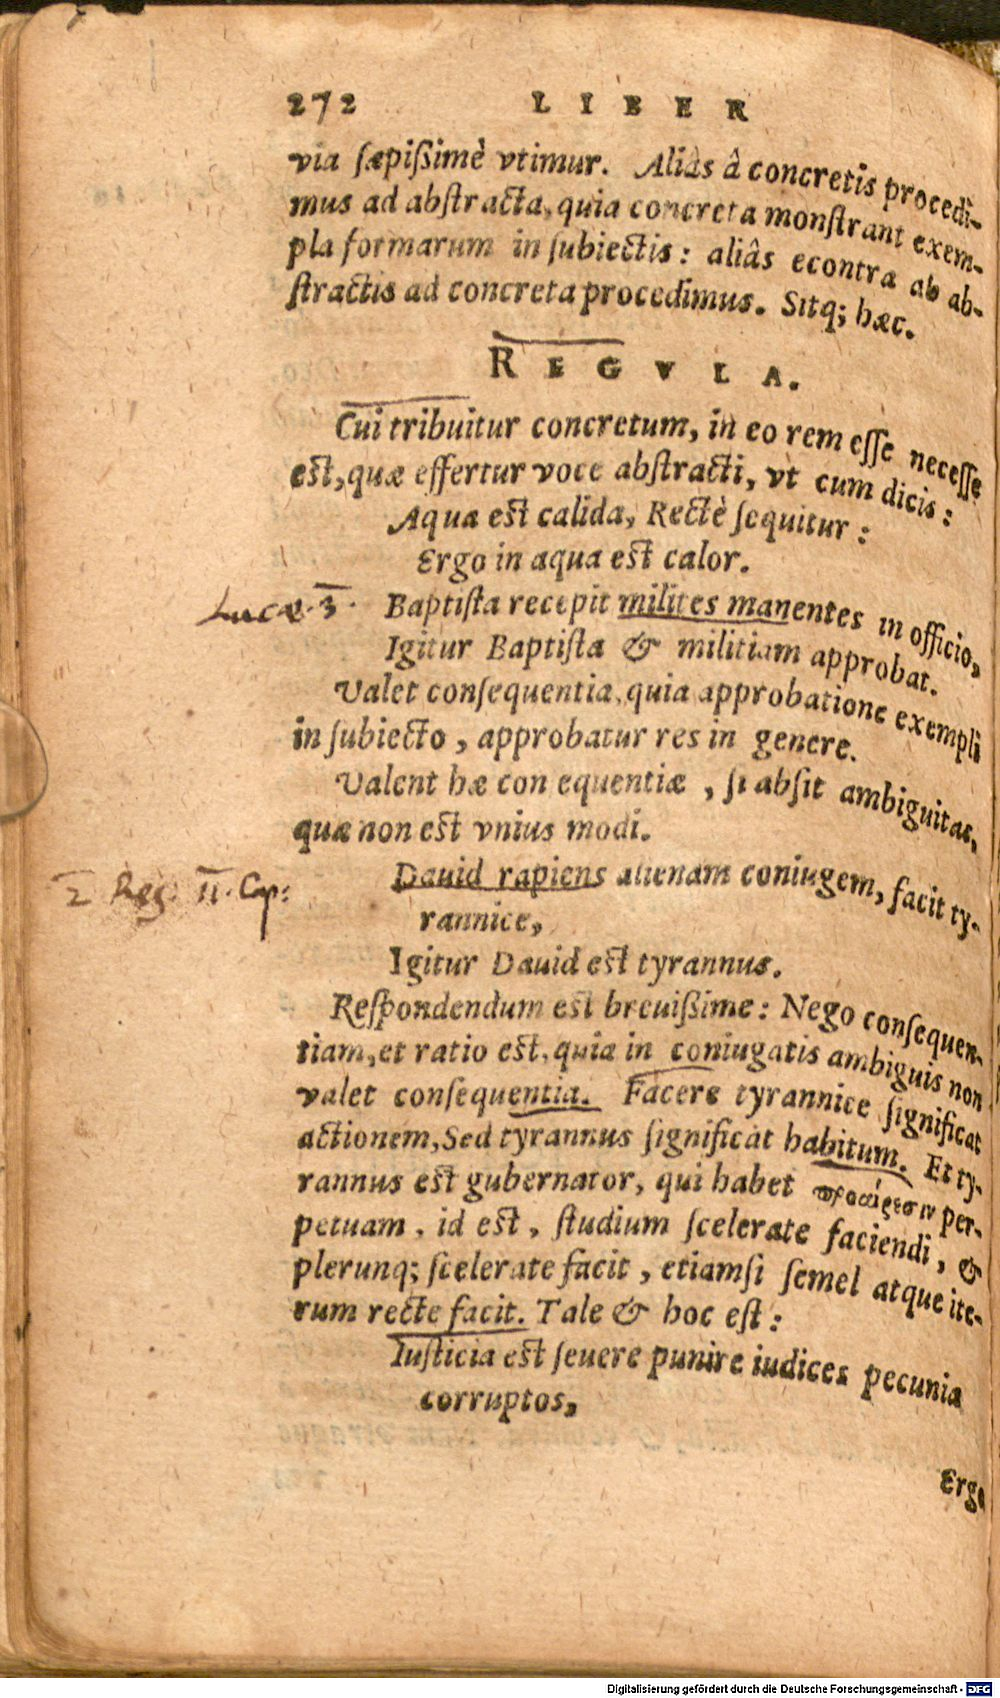 272 LIBER
via sæpißimè vtimur. Aliâs â concretis procedi-
mus ad abstracta, quia concreta monstrant exem-
pla formarum in subiectis: aliâs econtra ab ab-
stractis ad concreta procedimus. Sitq; hæc.
REGVLA.
Cui tribuitur concretum, in eo rem esse necesse
est, quæ effertur voce abstracti, vt cum dicis:
Aqua est calida, Rectè sequitur:
Ergo in aqua est calor.
Lucæ. 3. Baptista recepit milites manentes in officio,
Igitur Baptista & militiam approbat.
Valet consequentia, quia approbatione exempli
in subiecto, approbatur res in genere.
Valent hæ con equentiæ, si absit ambiguitas,
quæ non est vnius modi.
2 Reg. 11. Cap: Dauid rapiens alienam coniugem, facit ty-
rannice,
Igitur Dauid est tyrannus.
Respondendum est breuißime: Nego consequen-
tiam, et ratio est, quia in coniugatis ambiguis non
valet consequentia. Facere tyrannice significat
actionem, Sed tyrannus significat habitum. Et ty-
rannus est gubernator, qui habet προαίρεσιν per-
petuam, id est, studium scelerate faciendi, &
plerunq; scelerate facit, etiamsi semel atque ite-
rum recte facit. Tale & hoc est:
Iusticia est seuere punire iudices pecunia
corruptos,
Ergo
Digitalisierung gefördert durch die Deutsche Forschungsgemeinschaft - DFG